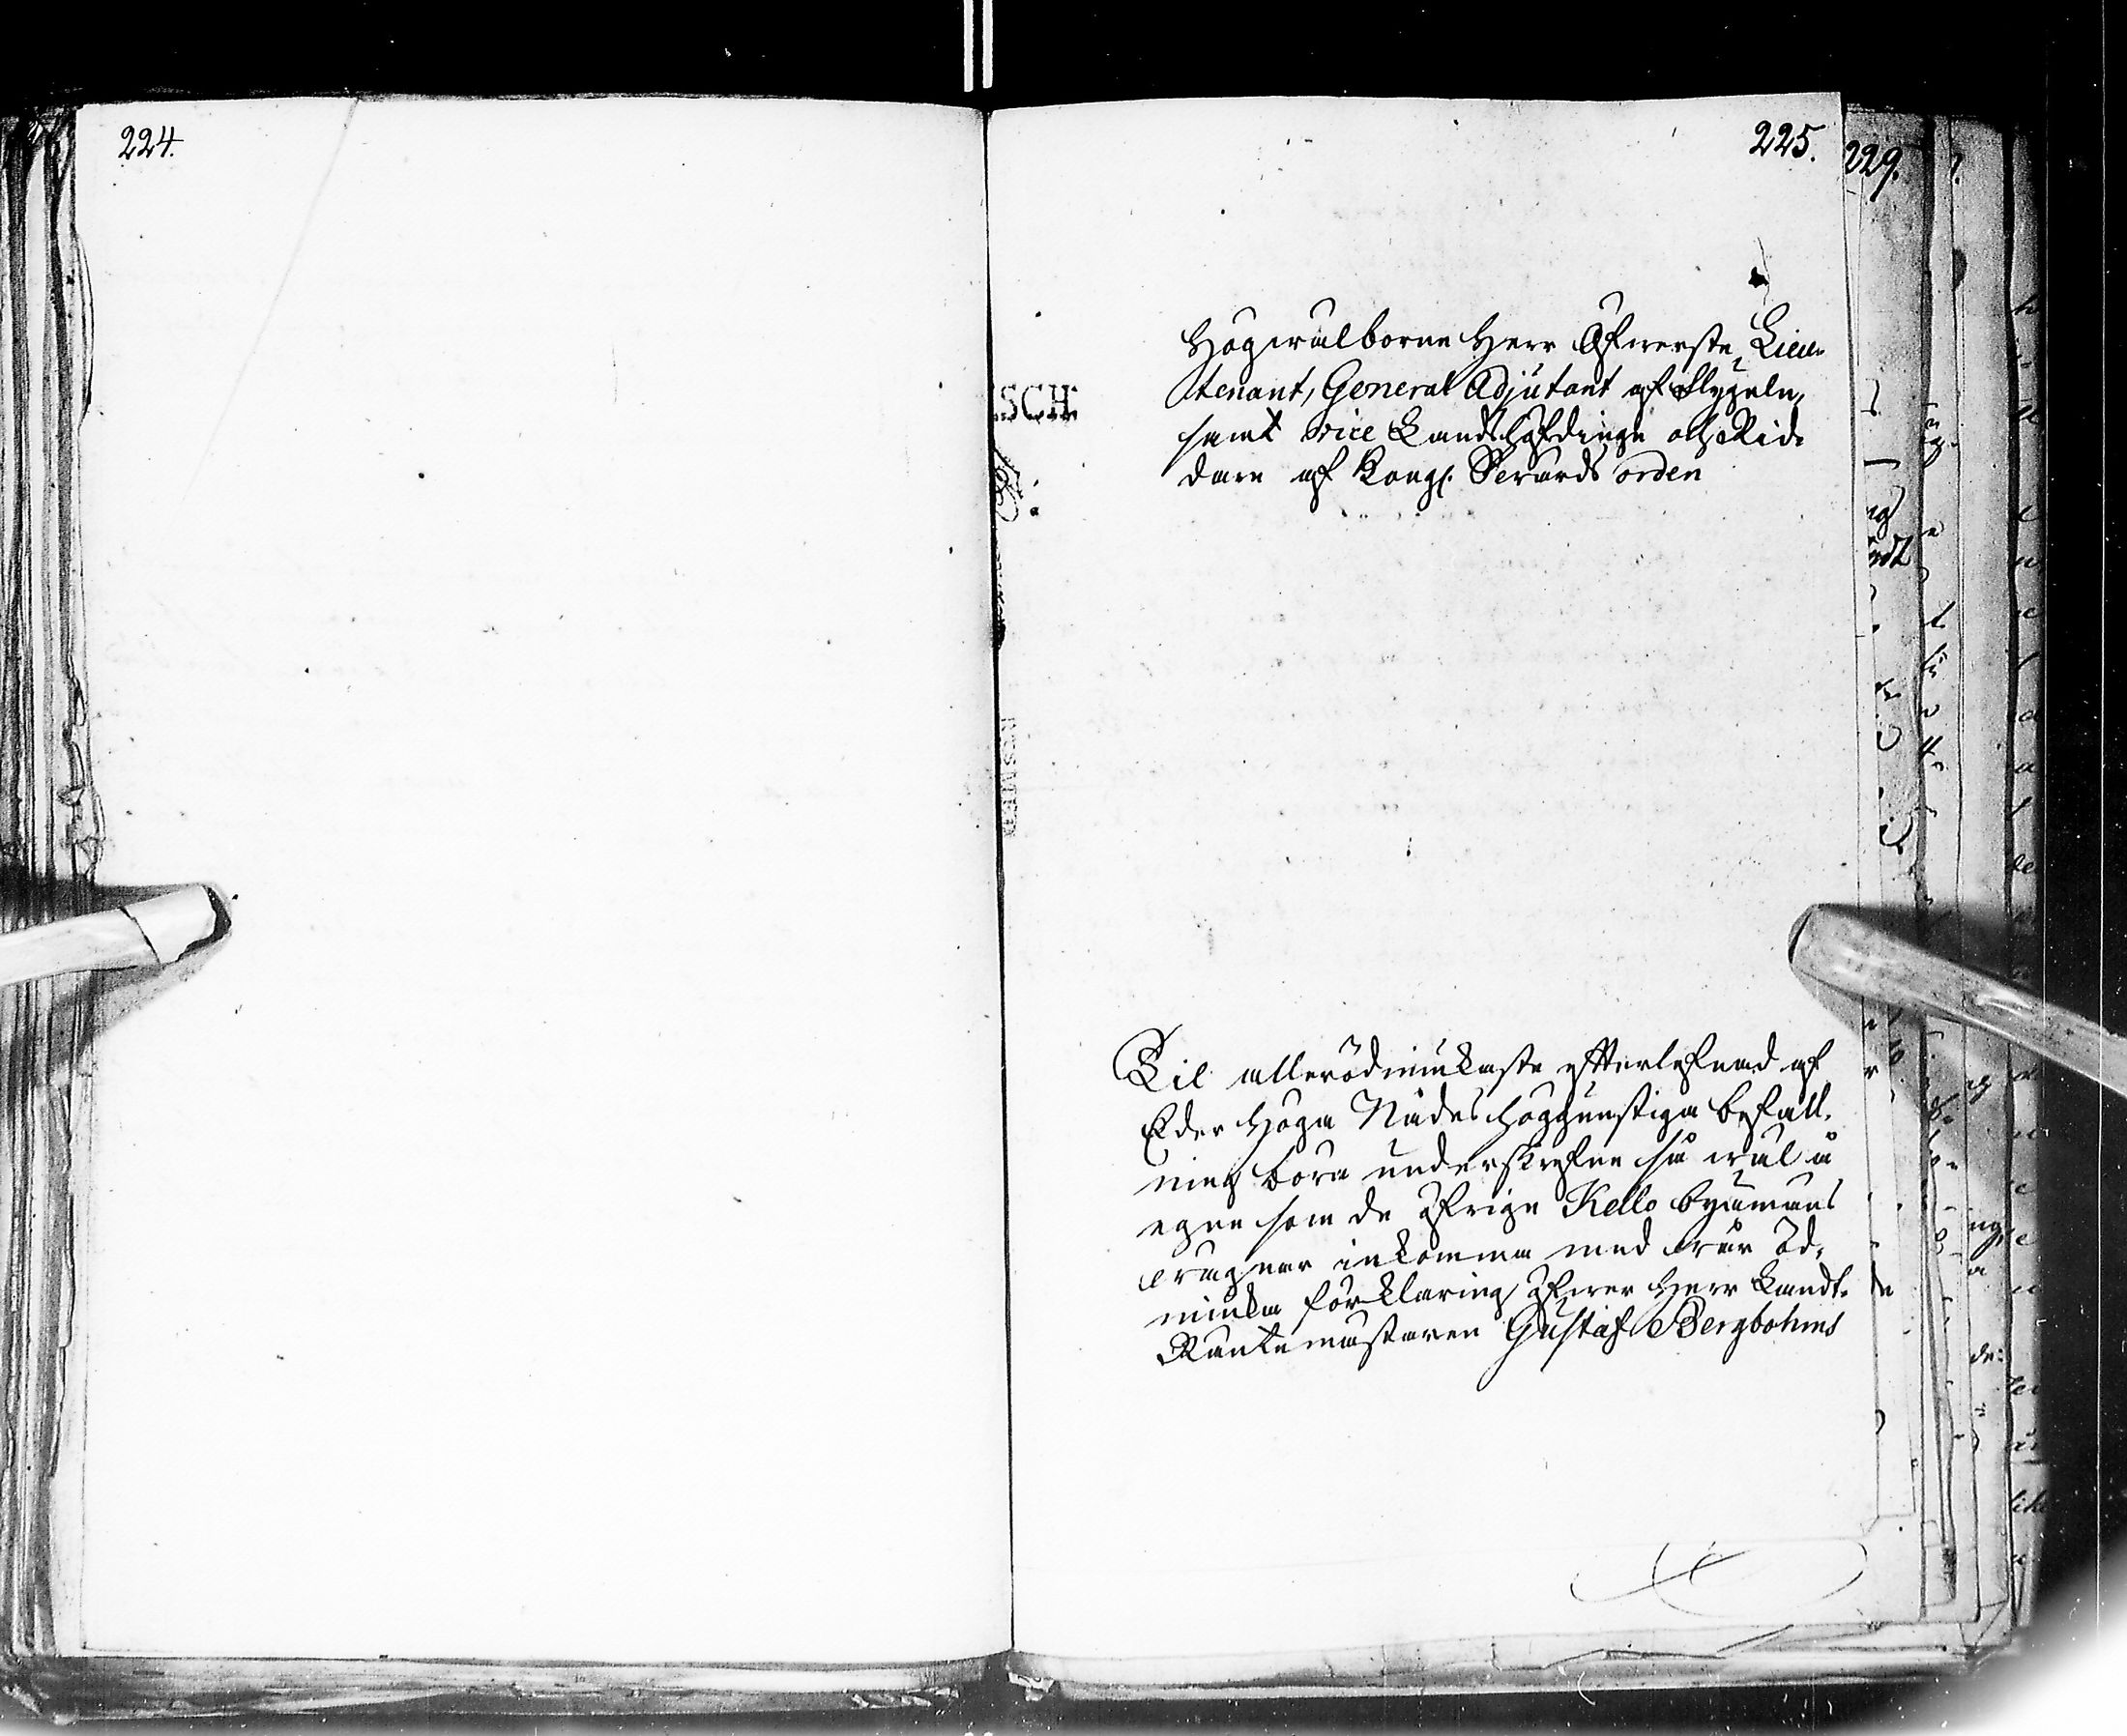 224.
225.
229.
SCH
Högwälborne Herr Öfwerste Lieu-
tenant, General Adjutant af Flygeln,
samt vice Landshöfdinge och Rid-
dare af Kongl. Swärds orden
Til allerödmiukaste efterlefnad af
Eder Höga Nådes höggunstiga befall-
ning böra underskrefne så wäl å
egne som de öfrige Kello byamäns
wägnar inkomma med wår öd-
miuka förklaring öfwer Herr Landt-
Räntemästaren Gustaf Bergbohms